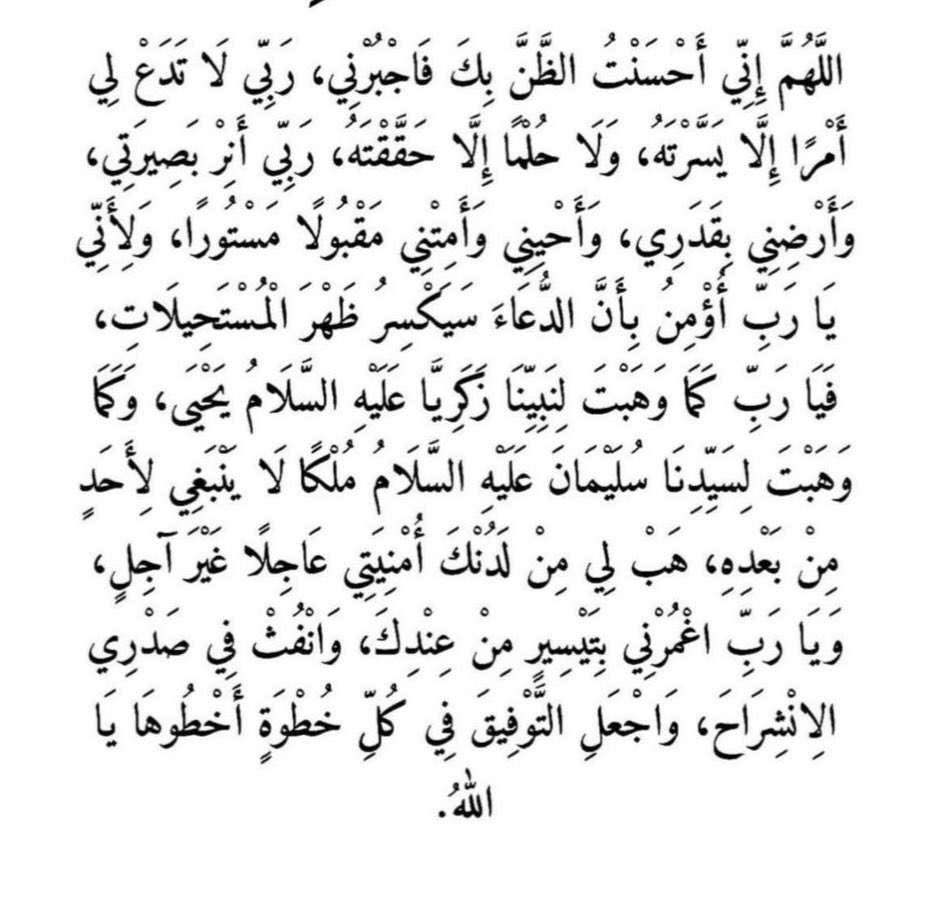 اللَّهُمَّ إِنِّي أَحْسَنْتُ الظَّنَّ بِكَ فَاجْبُرْنِي، رَبِّي لَا تَدَعْ لِي
أَمْرًا إِلَّا يَسَّرْتَهُ، وَلَا حُلْمًا إِلَّا حَقَّقْتَهُ، رَبِّي أَنِرْ بَصِيرَتِي،
وَأَرْضِنِي بِقَدَرِي، وَأَحْيِنِي وَأَمِتْنِي مَقْبُولًا مَسْتُورًا، وَلِأَنِّي
يَا رَبِّ أُؤْمِنُ بِأَنَّ الدُّعَاءَ سَيَكْسِرُ ظَهْرَ الْمُسْتَحِيلَاتِ،
فَيَا رَبِّ كَمَا وَهَبْتَ لِنَبِيِّنَا زَكَرِيَّا عَلَيْهِ السَّلَامُ يَحْيَى، وَكَمَا
وَهَبْتَ لِسَيِّدِنَا سُلَيْمَانَ عَلَيْهِ السَّلَامُ مُلْكًا لَا يَنْبَغِي لِأَحَدٍ
مِنْ بَعْدِهِ، هَبْ لِي مِنْ لَدُنْكَ أُمْنِيَتِي عَاجِلًا غَيْرَ آجِلٍ،
وَيَا رَبِّ اغْمُرْنِي بِتَيْسِيرٍ مِنْ عِنْدِكَ، وَانْفُثْ فِي صَدْرِي
الِانْشِرَاحَ، وَاجْعَلِ التَّوْفِيقَ فِي كُلِّ خُطْوَةٍ أَخْطُوهَا يَا
اللهُ.